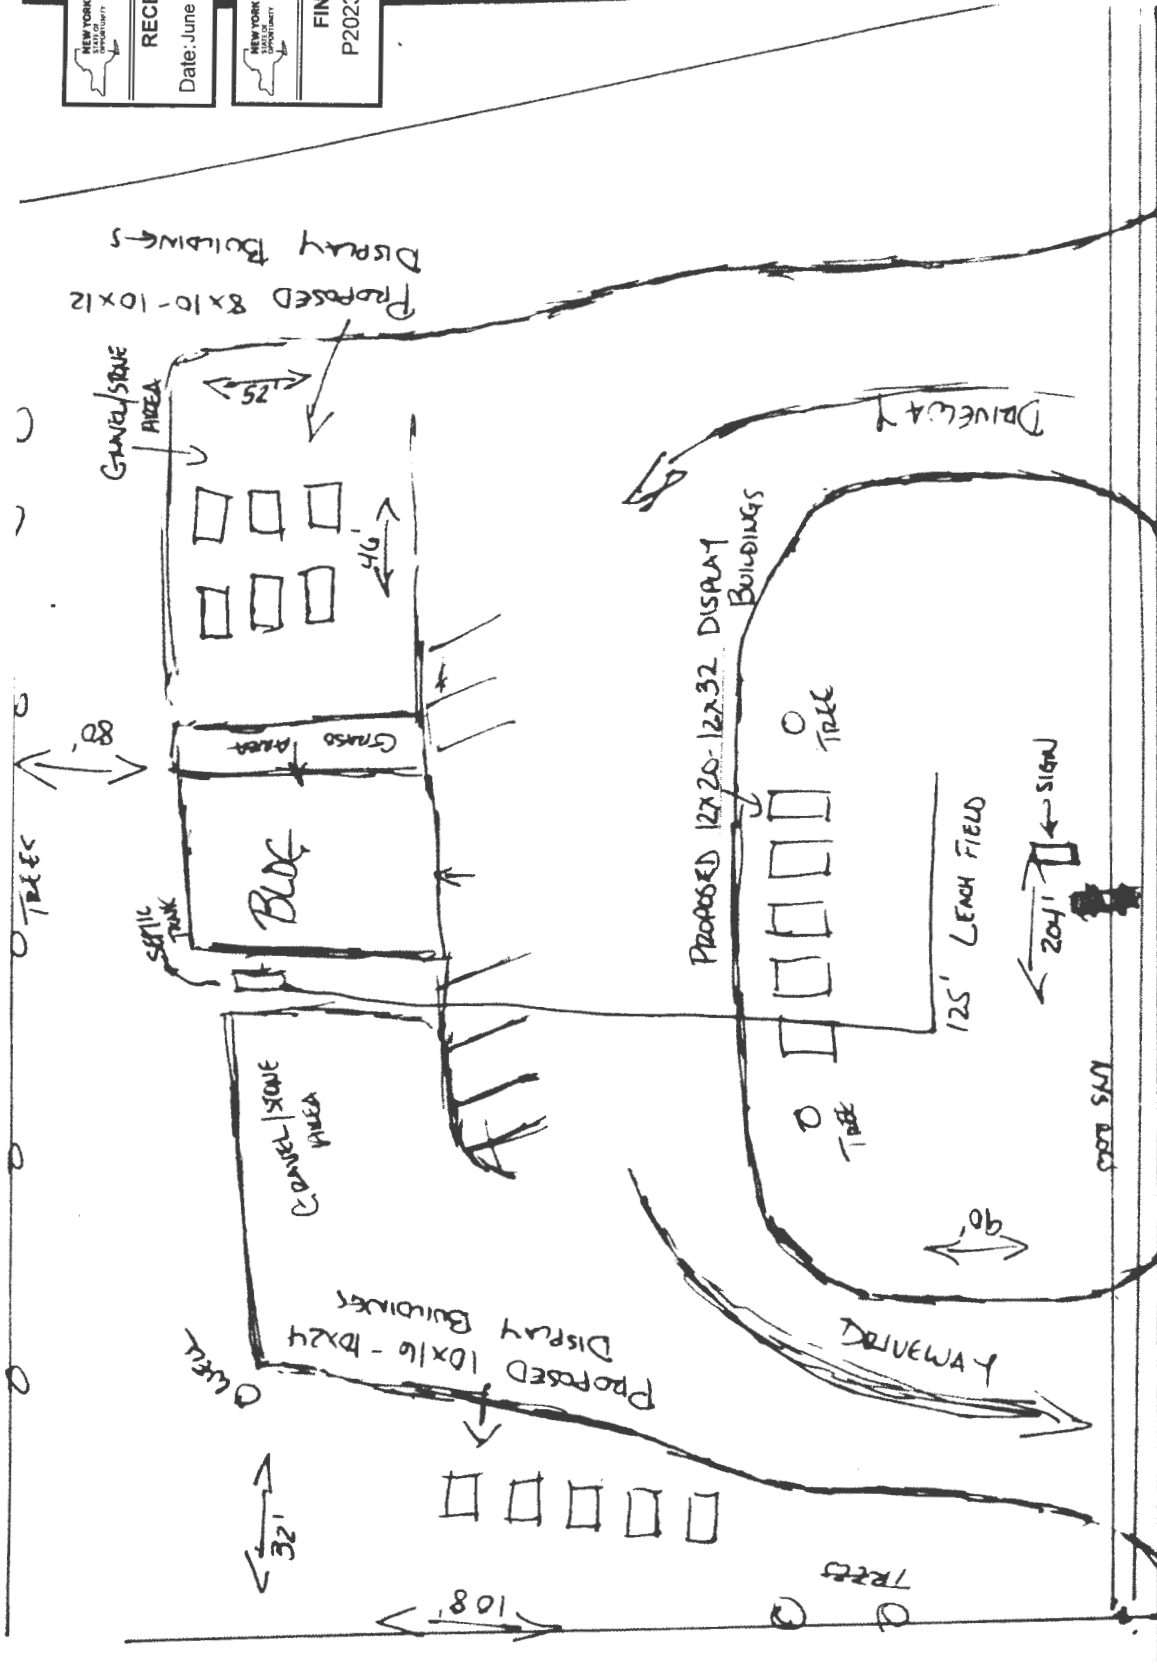 NEW YORK
STATE OF
OPPORTUNITY
RECE
Date: June
NEW YORK
STATE OF
OPPORTUNITY
FIN
P2023
PROPOSED 8x10-10x12
DISPLAY BUILDINGS
GRAVEL/STONE
AREA
52'
46'
DRIVEWAY
PROPOSED 12x20-12x32 DISPLAY
BUILDINGS
TREE
GRASS
AREA
80'
TREES
BLDG
SEPTIC
TANK
125' LEACH FIELD
SIGN
204'
GRAVEL/STONE
AREA
TREE
90'
WELL
PROPOSED 10x16-10x24
DISPLAY BUILDINGS
DRIVEWAY
32'
108'
TREES